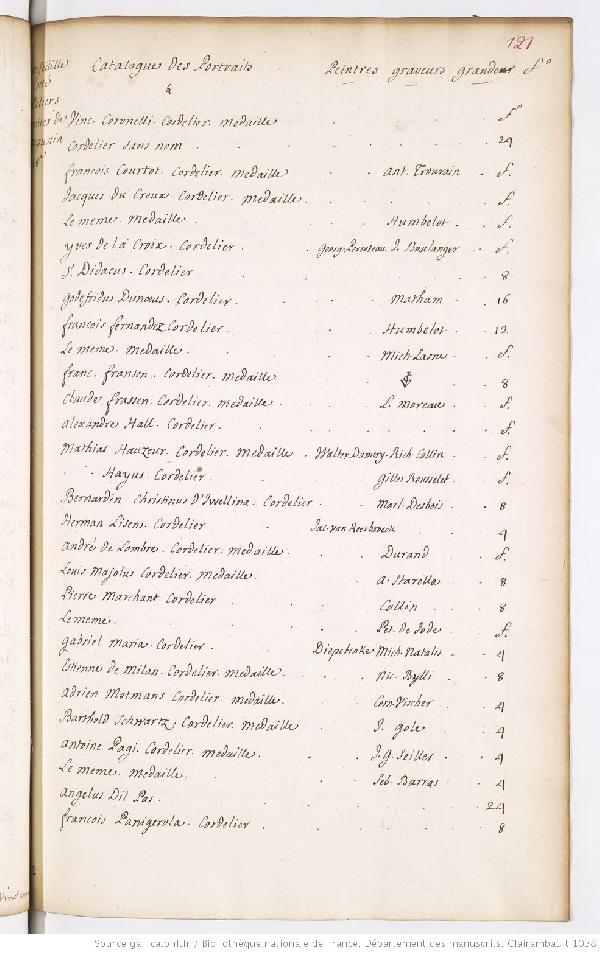 121
Catalogue Des Portraits Peintres graveurs grandeur f°
§
Vinc. Coronelli. Cordelier. medaille f°
Cordelier sans nom 24
francois Courtot. Cordelier. medaille ant. Trouvain f.
Jacques du Creux. Cordelier. medaille f.
Le meme. medaille Humbelot f.
yves de la Croix. Cordelier J. Boulanger f.
St. Didacus. Cordelier 8
godefridus Dunœus. Cordelier Matham 16
francois fernandez Cordelier Humbelot 12
Le meme. medaille Mich. Lasne f.
franc. fransen. Cordelier. medaille 8
Claude frassen. Cordelier. medaille L. moreau f.
alexandre Hall. Cordelier f.
mathias Hauzeur. Cordelier. medaille Walter Damery. Rich. Collin f.
Hayus. Cordelier Gilles Rousselet f.
Bernardin Christinus D'Ivellina. Cordelier Marl. Desbois 8
Herman Lisens. Cordelier Jac. van Reesbroeck 4
andré de Lombre. Cordelier. medaille Durand f.
Louis Majolus Cordelier. medaille 8
Pierre Marchant Cordelier Collin 8
Le meme Pet. de Jode f.
gabriel maria. Cordelier Diepebeke Mich. Natalis 4
Etienne de Milan. Cordelier. medaille Nic. Bylli 8
adrien Motmans Cordelier. medaille Corn. Vischer 4
Barthold Schwartz. Cordelier. medaille J. gole 4
antoine Pagi. Cordelier. medaille J. g. Seiller 4
Le meme. medaille Seb. Barras 4
angelus Dil Pas 24
francois Panigerola. Cordelier 8
Source gallica.bnf.fr / Bibliothèque nationale de France. Département des manuscrits. Clairambault 1038